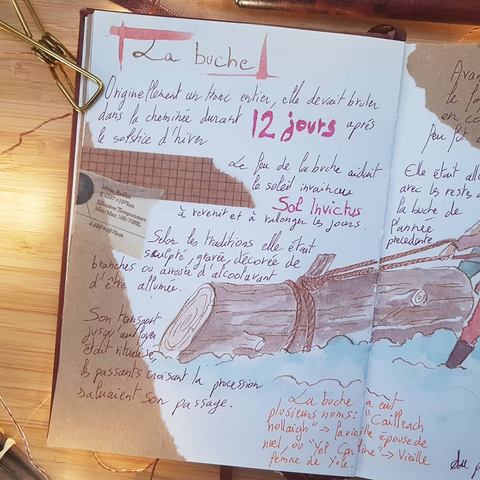 La buche
Originellement un tronc entier, elle devait bruler
dans la cheminée durant 12 jours après
le solstice d'hiver
Le feu de la buche aidait
le soleil invaincu
Sol Invictus
à revenir et à ralonger les jours.
Selon les traditions elle était
sculpté, gravée, décorée de
branches ou arrosée d'alcool avant
d'être allumée.
Son transport
jusqu'au foyer
était ritualisé,
les passants croisant la procession
saluaient son passage.
La buche a eut
plusieurs noms: "Cailleach
nollaigh" → la vieille épouse de
noel, ou "Yel → Vieille
femme de Yole.
Avan
le fo
en co
feu fut
Elle était all
avec les restes d
la buche de
l'année
précedente
du p